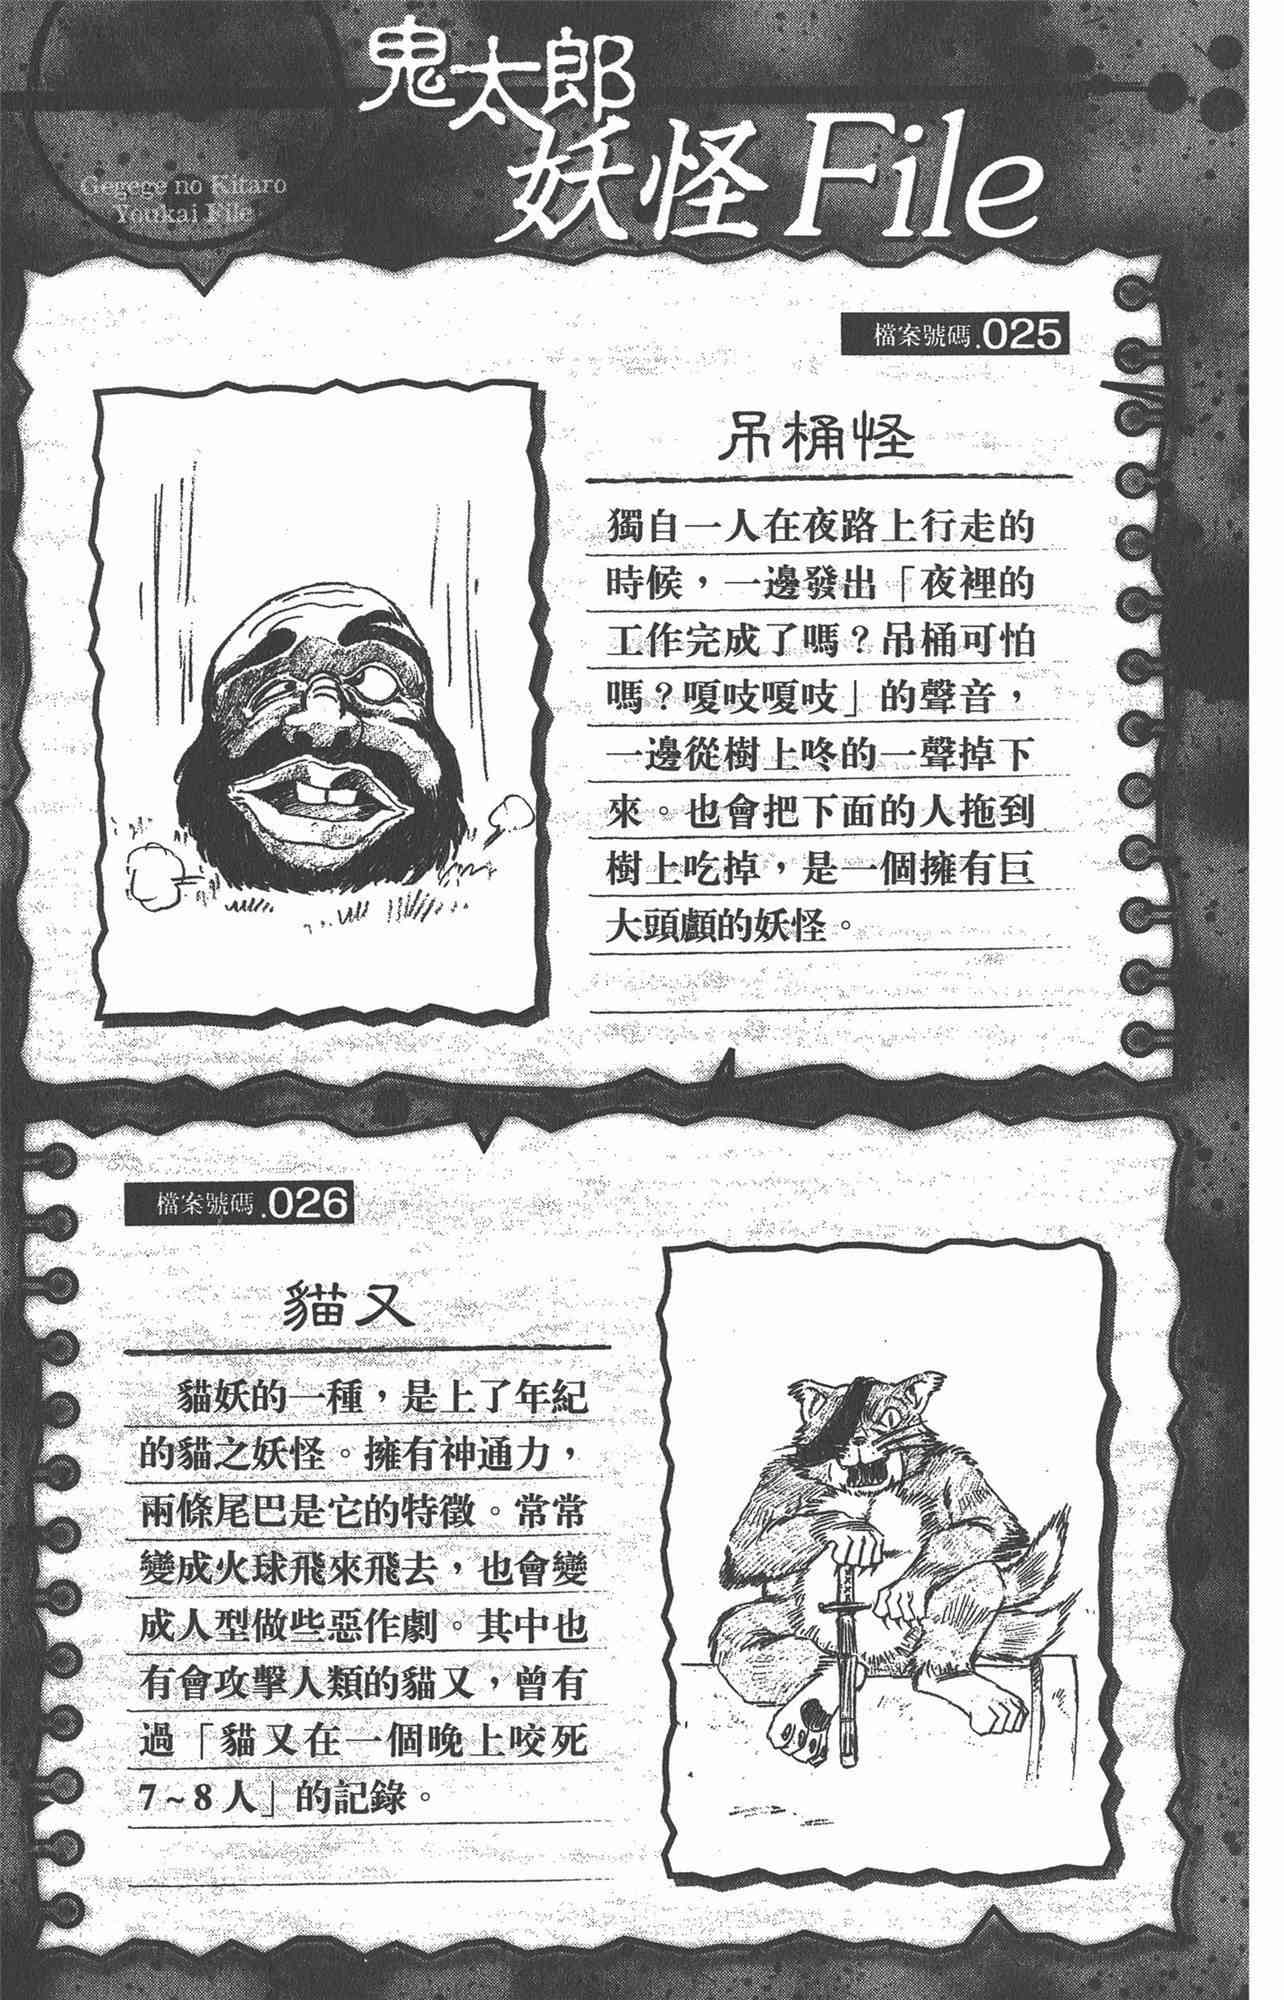 鬼太郎
妖怪File
Gegege no Kitaro
Youkai File
檔案號碼.025
吊桶怪
獨自一人在夜路上行走的
時候，一邊發出「夜裡的
工作完成了嗎？吊桶可怕
嗎？嘎吱嘎吱」的聲音，
一邊從樹上咚的一聲掉下
來。也會把下面的人拖到
樹上吃掉，是一個擁有巨
大頭顱的妖怪。
檔案號碼.026
貓又
貓妖的一種，是上了年紀
的貓之妖怪。擁有神通力，
兩條尾巴是它的特徵。常常
變成火球飛來飛去，也會變
成人型做些惡作劇。其中也
有會攻擊人類的貓又，曾有
過「貓又在一個晚上咬死
7~8人」的記錄。